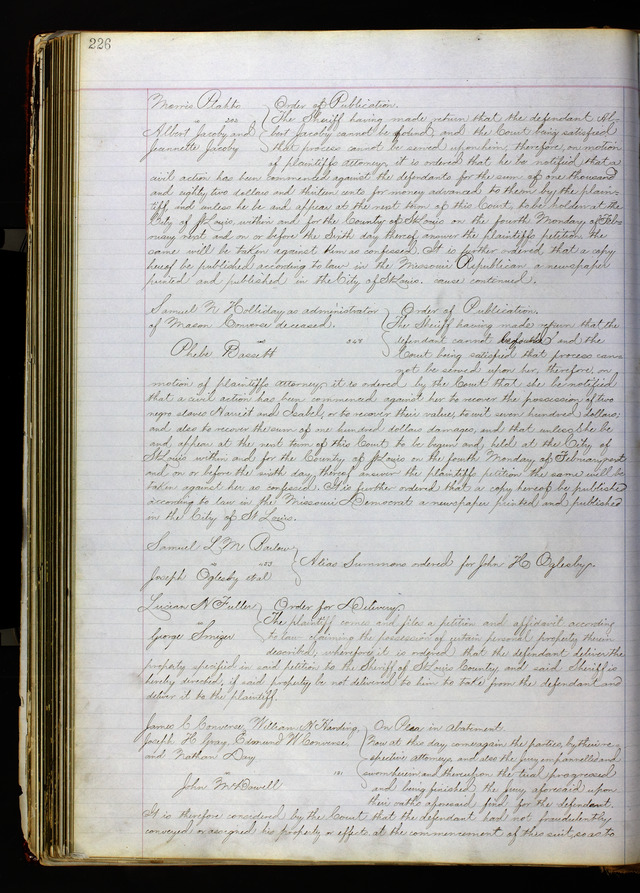 226
Morris Plahto } Order of Publication.
" 202 The Sheriff having made return that the defendant Al-
Albert Jacoby and bert Jacoby cannot be found, and the Court being satisfied
Jeannette Jacoby that process cannot be served upon him, therefore, on motion
of plaintiffs attorney, it is ordered that he be notified that a
civil action has been commenced against the defendants for the sum of one thousand
and eighty two dollars and thirteen cents for money advanced to them by the plain-
tiff and unless he be and appear at the next term of this Court, to be holden at the
City of St Louis, within and for the County of St Louis on the fourth Monday of Feb-
ruary next and on or before the Sixth day thereof answer the plaintiffs petition the
same will be taken against him as confessed. It is further ordered that a copy
hereof be published according to law in the Missouri Republican a newspaper
printed and published in the City of St Louis. cause continued.
Samuel N Holliday as administrator } Order of Publication.
of Mason Converse deceased. The Sheriff having made return that the
" defendant cannot be found and the
Phebe Bassett Court being satisfied that process can-
not be served upon her, therefore, on
motion of plaintiffs attorney, it is ordered by the Court that she be notified
that a civil action has been commenced against her to recover the possession of two
negro slaves and Isabel, or to recover their value, to wit seven hundred dollars;
and also to recover the sum of one hundred dollars damages, and that unless she be
and appear at the next term of this Court to be begun and held at the City of
St Louis within and for the County of St Louis on the fourth Monday of February next
and on or before the sixth day thereof answer the plaintiff petition the same will be
taken against her as confessed. It is further ordered that a copy hereof be published
according to law in the Missouri Democrat a newspaper printed and published
in the City of St Louis.
Samuel L M Barlow
" } Alias Summons ordered for John H Oglesby.
Joseph Oglesby et al
Lucian N Fuller } Order for Delivery
" The plaintiff comes and files a petition and affidavit, according
George Smizer to law claiming the possession of certain personal property therein
described, wherefore it is ordered that the defendant deliver the
property specified in said petition to the Sheriff of St Louis County, and said Sheriff is
hereby directed, if said property be not delivered to him to take from the defendant and
deliver it to the plaintiff.
James C Converse, William N Harding, } On Plea in Abatement.
Joseph H Gray, Edmund W Converse Now at this day, come again the parties, by their re-
and Nathan Day spective attorneys, and also the jury empannelled and
" 181 sworn herein and thereupon the trial progressed
John McDowell and being finished the jury, aforesaid upon
their oaths aforesaid find for the defendant.
It is therefore considered by the Court that the defendant had not fraudulently
conveyed or assigned his property or effects at the commencement of this suit, so as to